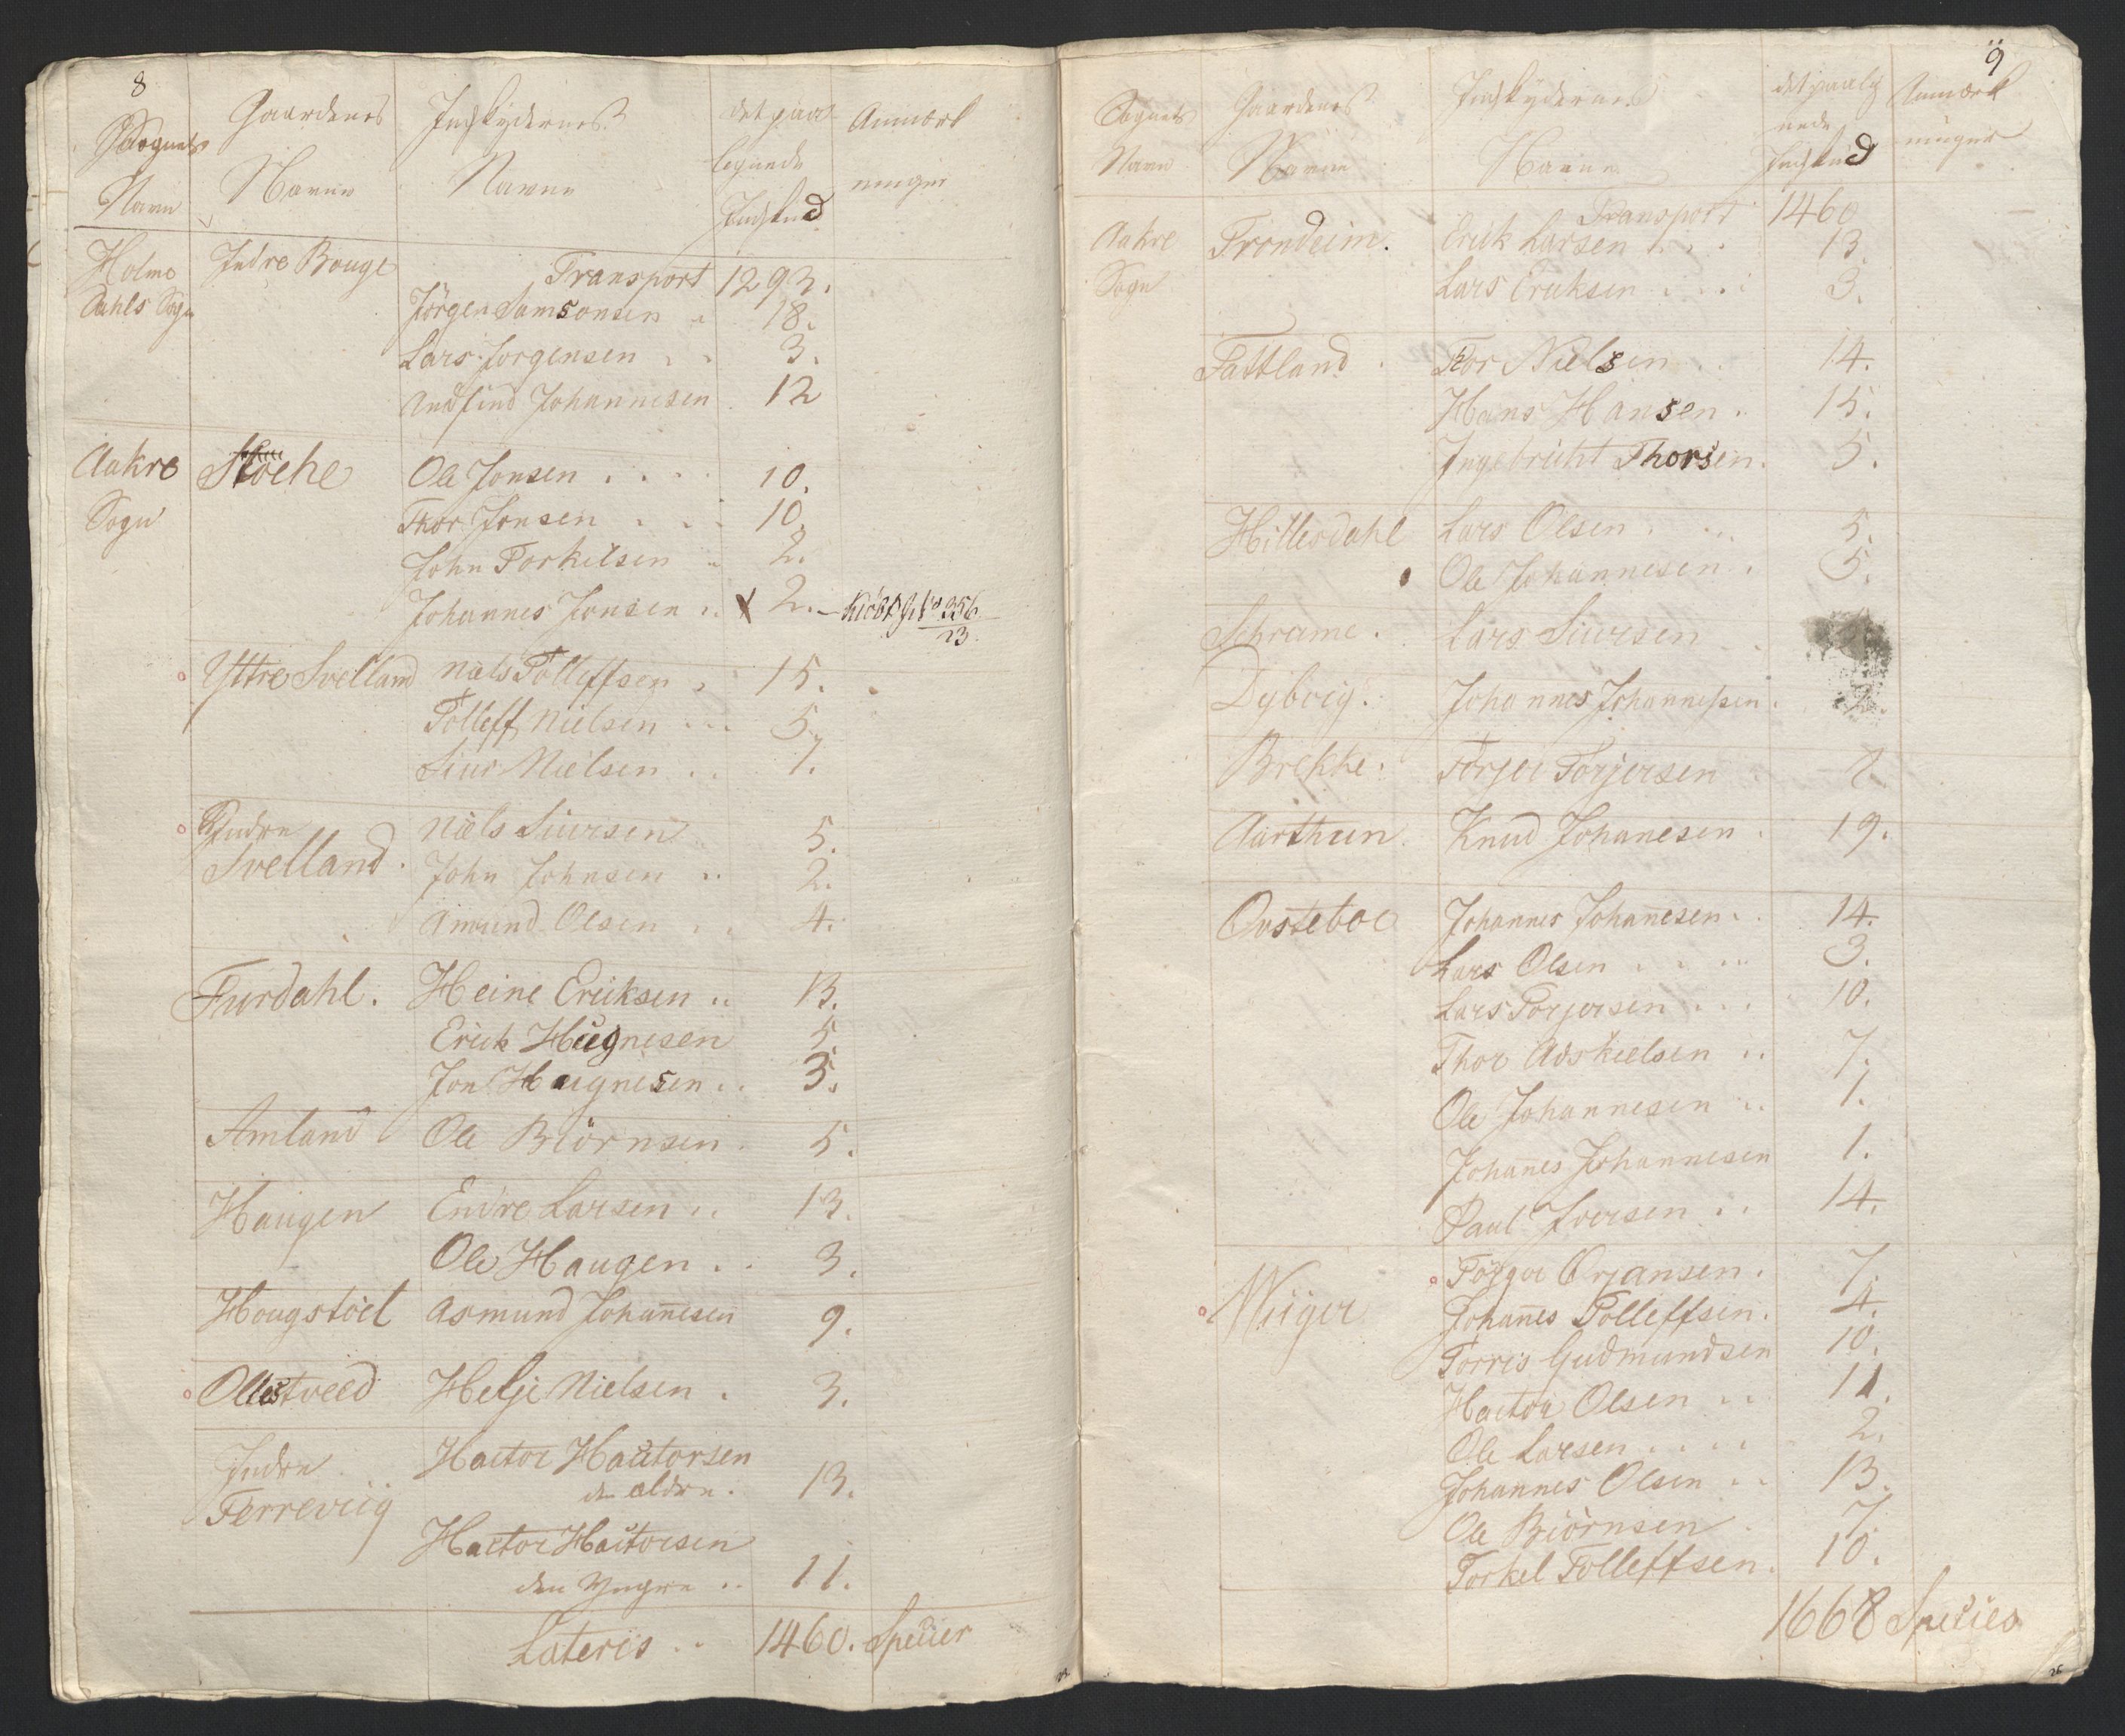 8
Sognets Navn | Gaardenes Navne | Indskydernes Navne | det paalegnede Indskud | Anmærkninger
Holmedahls Sogn | Indre Bouge | Transport | 1293.
Jörgen Samsonsen | 18.
Lars Jorgensen | 3.
Andfind Johannesen | 12
Aakre Sogn | Stoele | Ole Jonsen | 10.
Thor Jonsen | 10.
John Torkelsen | 2.
Johannes Jonsen | 2. | 356 23
Yttre Svelland | Niels Tolleffsen | 15.
Tolleff Nielsen | 5.
Siur Nielsen | 7.
Indre Svelland | Niels Siursen | 5.
John Johnsen | 2.
Amund Olsen | 4.
Furdahl. | Heine Ericksen | 13.
Erick Hügnesen | 5.
Jon Haugnesen | 3.
Amland | Ole Biörnsen | 5.
Haugen | Endre Larsen | 13.
Ole Haugen | 3.
Hougstöel | Asmund Johannesen | 9.
Ollestveed | Helje Nielsen | 3.
Indre Ferreviig | Hactor Hactorsen den ældre. | 13.
Hactor Hactorsen den Yngre | 11.
Lateris | 1460. Specier
9
Sognets Navn | Gaardenes Navne | Indskydernes Navne | det paalegnede Indskud | Anmærkninger
Transport | 1460
Aakre Sogn | Frondeim. | Erick Larsen | 13.
Lars Ericksen | 3.
Fattland | Thor Nielsen | 14.
Hans Hansen | 15.
Ingebricht Thorsen | 5.
Hillesdahl | Lars Olsen | 5.
Ole Johannesen | 5.
Schrame. | Lars Siursen
Dybvig. | Johannes Johannessen
Brekke. | Torjer Torjersen
Aarthun | Knud Johanesen | 19.
Ovsteboe | Johannes Johanesen | 14.
Lars Olsen | 3.
Lars Torjersen | 10.
Thor Adskielsen | 7.
Ole Johannesen | 1.
Johanes Johannesen | 1.
Paul Iversen | 14.
Miiger | Torger Örjansen. | 7.
Johanes Tolleffsen. | 4.
Torris Gudmundsen | 10.
Hactor Olsen | 11.
Ole Larsen | 2.
Johannes Olsen | 13.
Ole Biörnsen | 7.
Torkel Tolleffsen. | 10.
1668 Specier